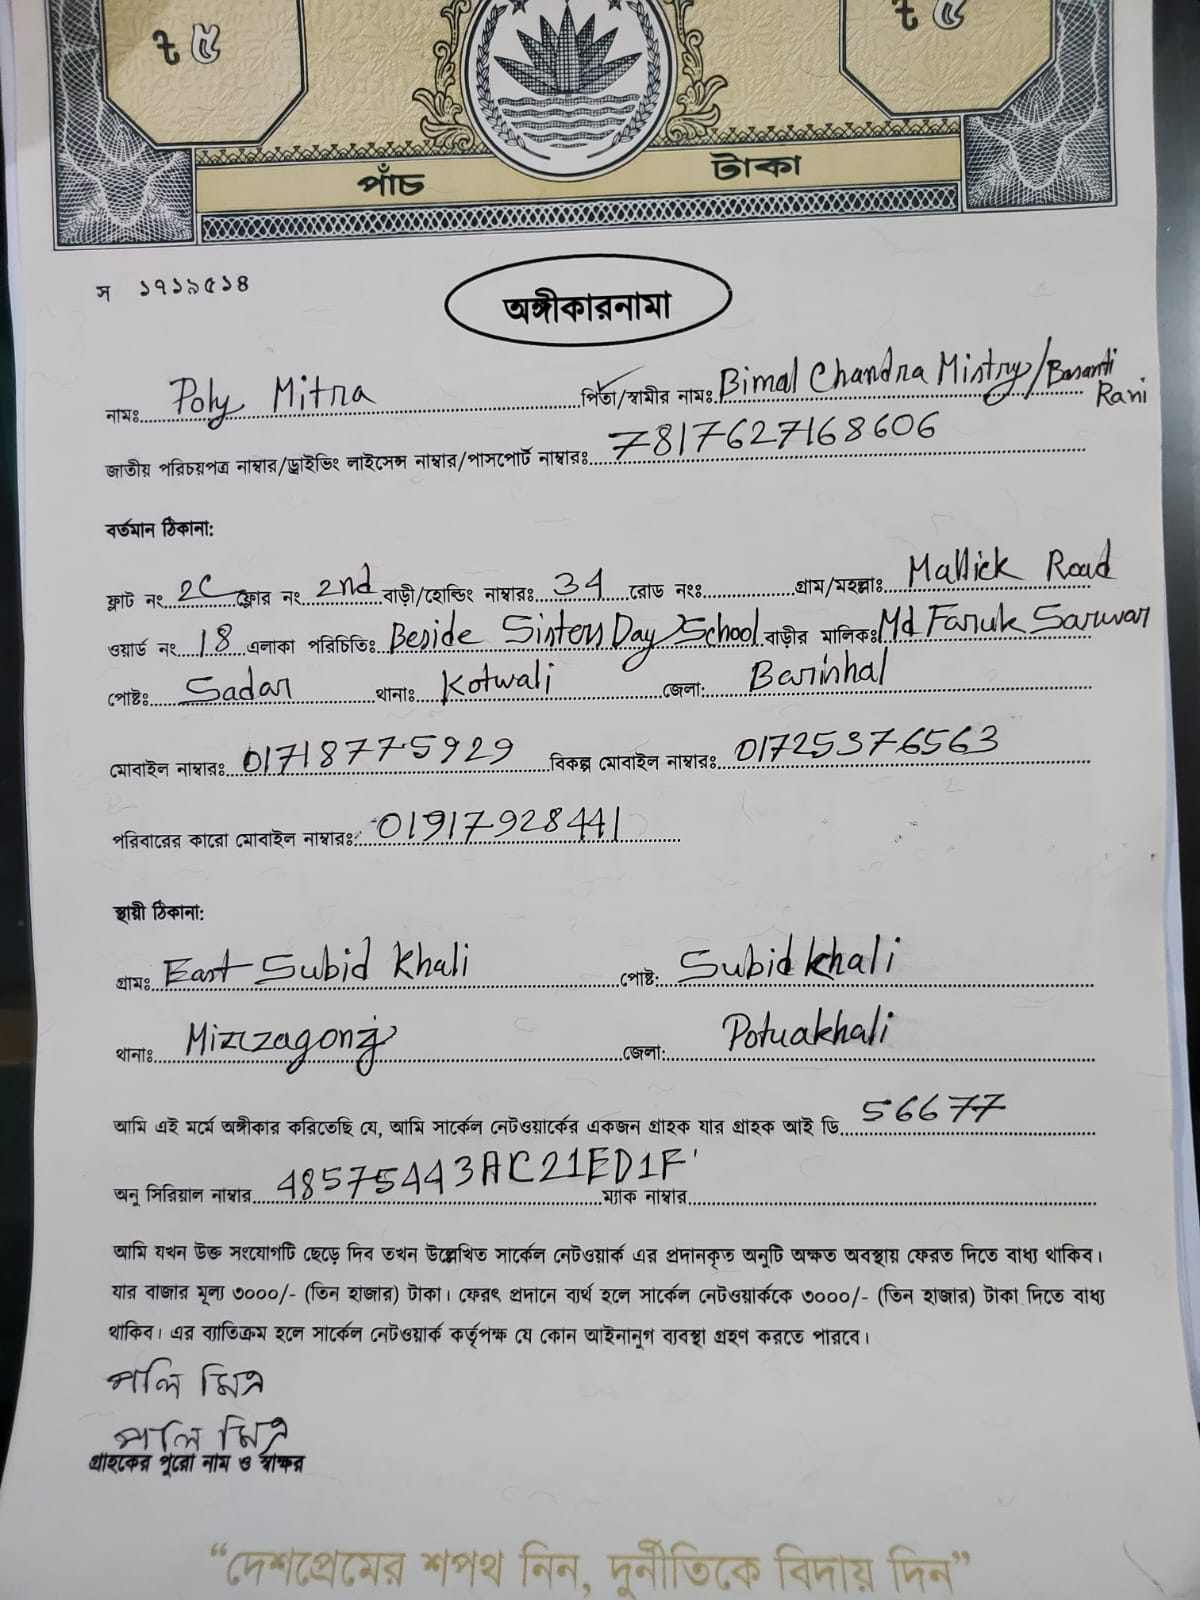 ৳ ৫ ৳ ৫
পাঁচ টাকা
স ১৭১৯৫১৪
অঙ্গীকারনামা
নামঃ Poly Mitra পিতা/স্বামীর নামঃ Bimal Chandra Mistry/Basanti Rani
জাতীয় পরিচয়পত্র নাম্বার/ড্রাইভিং লাইসেন্স নাম্বার/পাসপোর্ট নাম্বারঃ 7817627168606
বর্তমান ঠিকানা:
ফ্লাট নং 2C ফ্লোর নং 2nd বাড়ী/হোল্ডিং নাম্বারঃ 34 রোড নংঃ গ্রাম/মহল্লাঃ Mallick Road
ওয়ার্ড নং 18 এলাকা পরিচিতিঃ Beside Sisters Day School বাড়ীর মালিকঃ Md Faruk Sarwar
পোষ্টঃ Sadar থানাঃ Kotwali জেলা: Barishal
মোবাইল নাম্বারঃ 01718775929 বিকল্প মোবাইল নাম্বারঃ 01725376563
পরিবারের কারো মোবাইল নাম্বারঃ 01917928441
স্থায়ী ঠিকানা:
গ্রামঃ East Subid Khali পোষ্ট: Subidkhali
থানাঃ Mirzagonj জেলা: Potuakhali
আমি এই মর্মে অঙ্গীকার করিতেছি যে, আমি সার্কেল নেটওয়ার্কের একজন গ্রাহক যার গ্রাহক আই ডি 56677
অনু সিরিয়াল নাম্বার 48575443AC21ED1F ম্যাক নাম্বার
আমি যখন উক্ত সংযোগটি ছেড়ে দিব তখন উল্লেখিত সার্কেল নেটওয়ার্ক এর প্রদানকৃত অনুটি অক্ষত অবস্থায় ফেরত দিতে বাধ্য থাকিব।
যার বাজার মূল্য ৩০০০/- (তিন হাজার) টাকা। ফেরৎ প্রদানে ব্যর্থ হলে সার্কেল নেটওয়ার্ককে ৩০০০/- (তিন হাজার) টাকা দিতে বাধ্য
থাকিব। এর ব্যাতিক্রম হলে সার্কেল নেটওয়ার্ক কর্তৃপক্ষ যে কোন আইনানুগ ব্যবস্থা গ্রহণ করতে পারবে।
পলি মিত্র
পলি মিত্র
গ্রাহকের পুরো নাম ও স্বাক্ষর
“দেশপ্রেমের শপথ নিন, দুর্নীতিকে বিদায় দিন”